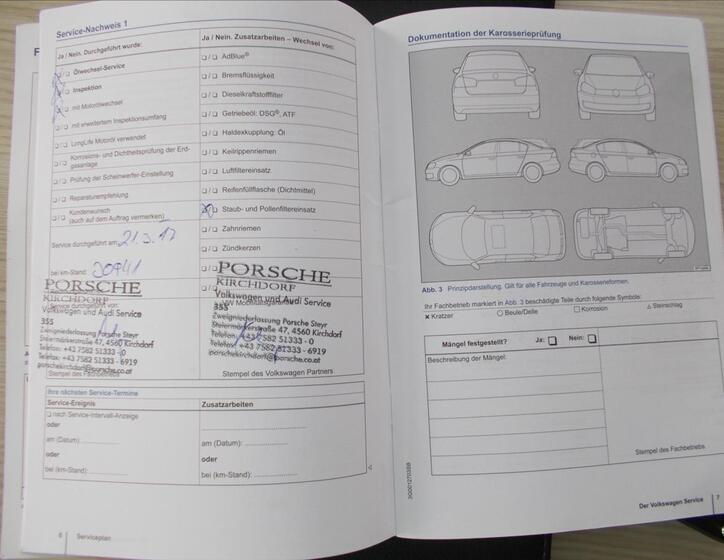 Service-Nachweis 1
Ja / Nein. Durchgeführt wurde:
Ölwechsel-Service
Inspektion
mit Motorölwechsel
mit erweitertem Inspektionsumfang
LongLife Motoröl verwendet
Korrosions- und Dichtheitsprüfung der Erd-
gasanlage
Prüfung der Scheinwerfer-Einstellung
Reparaturempfehlung
Kundenwunsch
(auch auf dem Auftrag vermerken)
Service durchgeführt am: 21.3.17
bei km-Stand:
PORSCHE
KIRCHDORF
Volkswagen und Audi Service
355
Zweigniederlassung Porsche Steyr
Steiermärkerstraße 47, 4560 Kirchdorf
Telefon: +43 7582 51333 - 0
Telefax: +43 7582 51333 - 6919
porschekirchdorf@porsche.co.at
Stempel des Fachbetriebs
Ja / Nein. Zusatzarbeiten – Wechsel von:
AdBlue®
Bremsflüssigkeit
Dieselkraftstofffilter
Getriebeöl: DSG®, ATF
Haldexkupplung: Öl
Keilrippenriemen
Luftfiltereinsatz
Reifenfüllflasche (Dichtmittel)
Staub- und Pollenfiltereinsatz
Zahnriemen
Zündkerzen
PORSCHE
KIRCHDORF
Volkswagen und Audi Service
355
Zweigniederlassung Porsche Steyr
Steiermärkerstraße 47, 4560 Kirchdorf
Telefon: +43 7582 51333 - 0
Telefax: +43 7582 51333 - 6919
porschekirchdorf@porsche.co.at
Stempel des Volkswagen Partners
Ihre nächsten Service-Termine
Service-Ereignis
nach Service-Intervall-Anzeige
oder
am (Datum):
oder
bei (km-Stand):
Zusatzarbeiten
am (Datum):
oder
bei (km-Stand):
6
Serviceplan
Dokumentation der Karosserieprüfung
Abb. 3 Prinzipdarstellung. Gilt für alle Fahrzeuge und Karosserieformen.
Ihr Fachbetrieb markiert in Abb. 3 beschädigte Teile durch folgende Symbole:
Kratzer
Beule/Delle
Korrosion
Steinschlag
Mängel festgestellt?
Ja:
Nein:
Beschreibung der Mängel:
Stempel des Fachbetriebs
3G0012703BB
Der Volkswagen Service
7